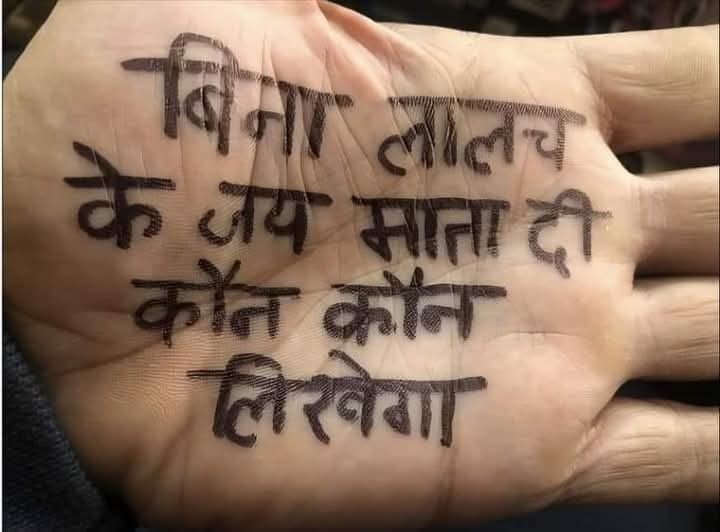 बिना लालच
के जय माता दी
कौन कौन
लिखेगा